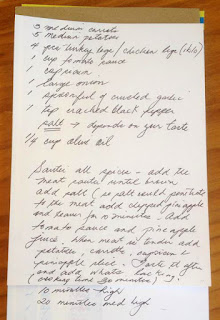 3 medium carrots
5 medium potatoes
4 pcs turkey legs / chicken legs (1 kilo)
1 cup tomato sauce
capsicum
1 large onion
spoonful of crushed garlic
1 tsp cracked black pepper
salt → depends on your taste
1/4 cup olive oil
Sautee all spices - add the
meat, saute until brown
add salt (so salt would penetrate
to the meat add chopped pineapple
and leave for 10 minutes - add
tomato sauce and pineapple
juice. When meat is tender add
potatoes, carrots, capsicum &
pineapple slice. Taste it often
and add whats lacking!
(cooking time 30 minutes)
10 minutes - high
20 minutes med high